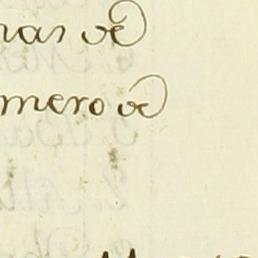 nas de
mero de